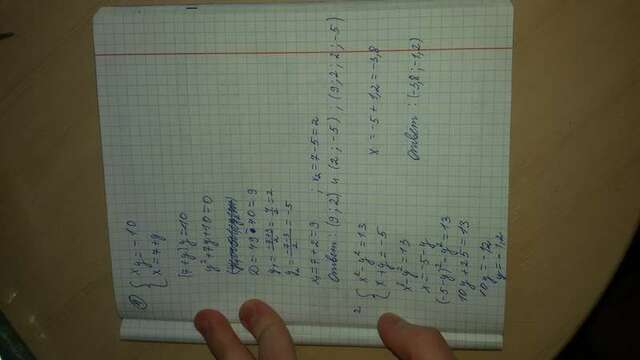 1) { xy = -10
x = 7 + y
(7+y)y = -10
y² + 7y + 10 = 0
D = 49 - 40 = 9
y₁ = (-7+3)/2 = 4/2 = 2
y₂ = (-7-3)/2 = -5
x₁ = 7 + 2 = 9 ; x₂ = 7 - 5 = 2
Ответ: (9; 2) и (2; -5) , (9; 2; 2; -5)
2. { x² - y² = 13
x + y = -5
x² - y² = 13
x = -5 - y
(-5-y)² - y² = 13
10y + 25 = 13
10y = -12
y = -1,2
x = -5 + 1,2 = -3,8
Ответ: (-3,8; -1,2)